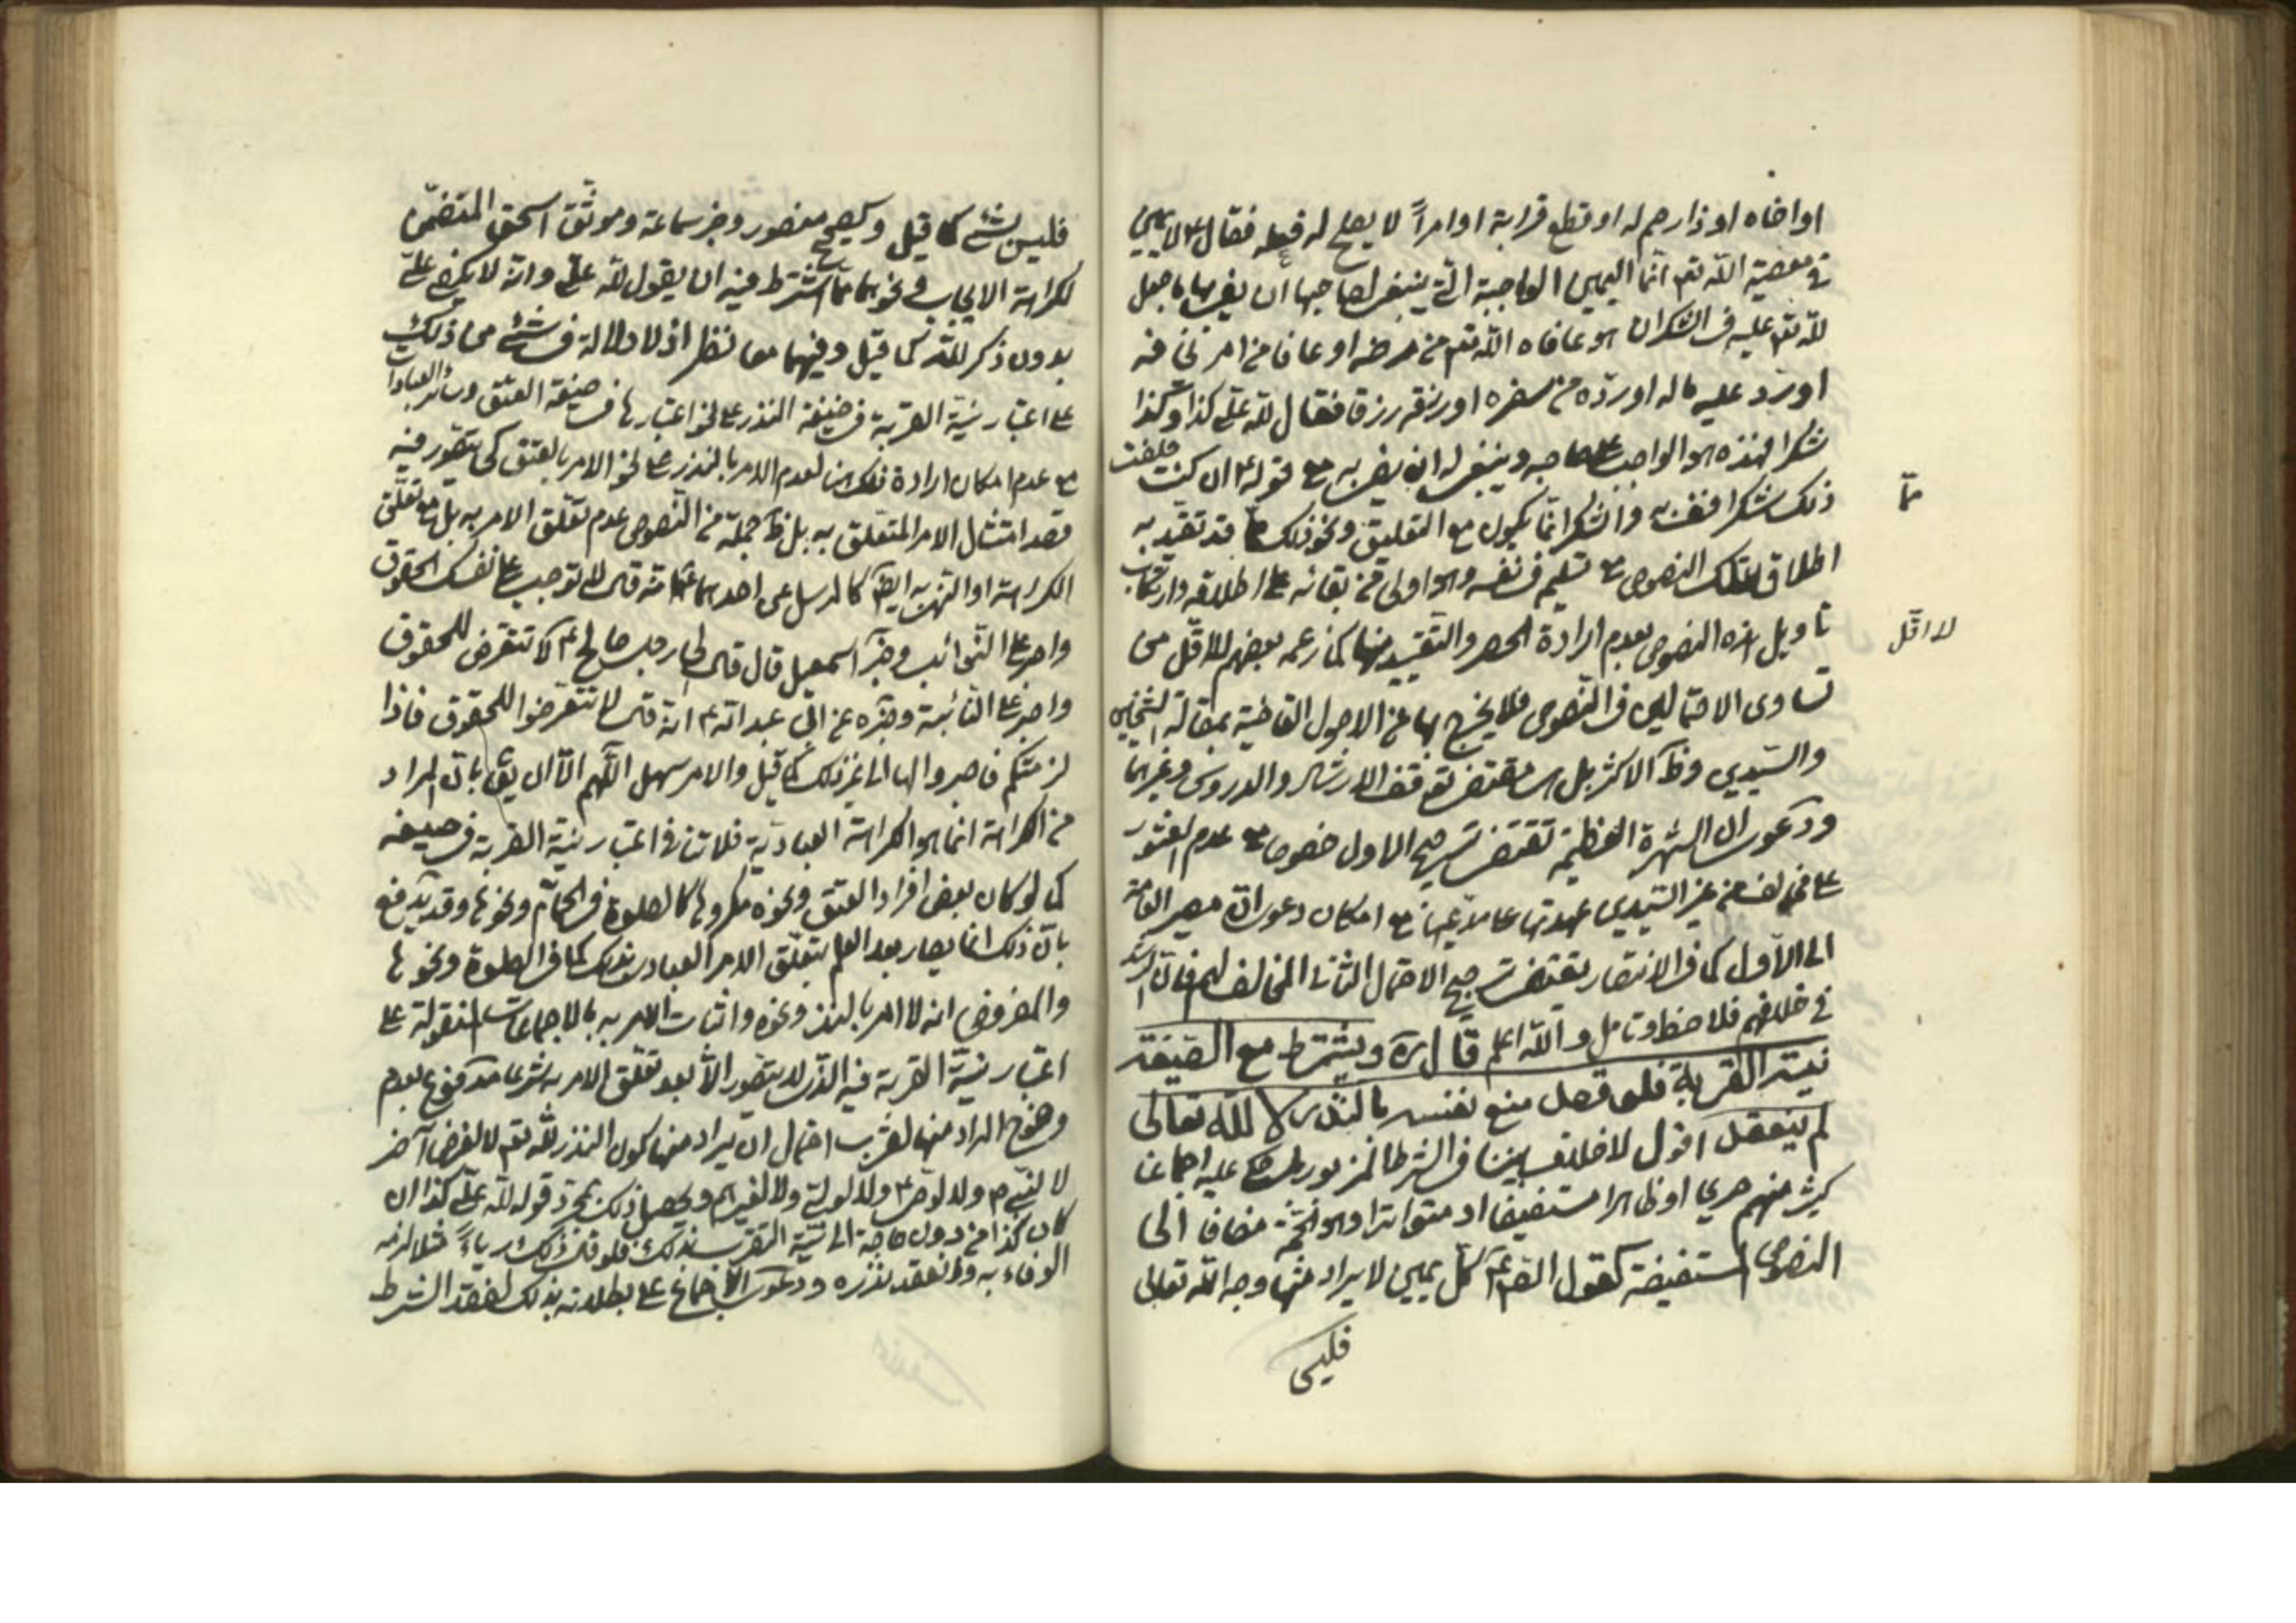 او اخاه او ذا رحم له او قطع قرابة او امراً لا يصلح له فعله فقال ع لا يمين
في معصية الله تعم انما اليمين الواجبة التي ينبغي لصاحبها ان يفي بها ما جعل
لله تعم عليه في الشكر ان هو عافاه الله تعم من مرضه او عافا من امر يخافه
او رد عليه ماله او ردّه من سفره او رزقه رزقا فقال لله علّي كذا وكذا
شكرا فهذه هو الواجب على صاحبه وينبغي له ان يفي به مع قوله ع ان كنت جعلت
ذلك شكرا فنعم والشكر انّما يكون مع التعليق ونحو ذلك قد تقيد به
ممّا
اطلاق تلك النصوص مع تسليم في نفسه وهو اولى من بقائه على اطلاقه وارتكاب
تاويل هذه النصوص بعدم ارادة الحصر والتقييد منها كما زعمه بعضهم للاقلّ من
لا اقلّ
تساوى الاحتمالين في النصوص فلا يخرج بها عن الاصول القاضية بمقالة الشيخين
والسيدين وظ الاكثر بل مقتضى توقف الارشاد والدروس وغيرهما
ودعوى ان الشهرة العظيمة تقتضي ترجيح الاول خصوصا مع عدم العثور
على مخالف من غير السيدين عهدتها على مدّعيها مع امكان دعوى ان مصير العامة
الى الاول كما في الانتصار يقتضي ترجيح الاحتمال الثاني المخالف لهم فان الرشد
في خلافهم فلاحظ وتامل والله اعلم قال ره ويشترط مع الصيغة
نية القربة فلو قصد منع نفسه بالنذر لا لله تعالى
لم ينعقد اقول لا خلاف بيننا في الشرط المزبور عليه اجماعا
كثير منهم صريحا او ظاهرا مستفيضا او متواترا وهو الحجّة مضافا الى
النصوص المستفيضة كقول الصم ع كل يمين لا يراد منها وجه الله تعالى
فليس
فليس بشئ كما قيل وصحيح منصور وخبر سماعة وموثق اسحق المتضمن
لكراهة الايجاب ونحوهما ممّا اشترط فيه ان يقول لله علّي وانه لا يكفي علّي
بدون ذكر الله كما قيل وفيهما معا نظر اذ لا دلالة في شئ من ذلك
على اعتبار نية القربة في صيغة النذر على نحو اعتبارها في صيغة العتق وسائر العبادات
مع عدم امكان ارادة ذلك هنا لعدم الامر بالنذر على نحو الامر بالعتق كي يتصور فيه
قصد امتثال الامر المتعلق به بل ظ جملة من النصوص عدم تعلق الامر به بل مع تعلق
الكراهة او التنزيه ايض كالمرسل عن احدهما ع انه قال لا توجب على نفسك الحقوق
واصبر على النوائب وخبر اسمعيل قال قال لجار وجب صالح ع لا تتعرض للحقوق
واصبر على النائبة وخبره عن ابي عبد الله ع انه قال لا تتعرضوا للحقوق فاذا
لزمتكم فاصبروا لها الى غير ذلك كما قيل والامر سهل اللهم الّا ان يق بانّ المراد
من الكراهة انما هو الكراهة العبادية فلا تنافي اعتبار نية القربة في صيغه
كما لو كان بعض افراد العتق ونحوه مكروها كالصلوة في الحمّام ونحوها وقد يدفع
بانّ ذلك انما يصار بعد العلم بتعلق الامر العبادى بذلك كما في الصلوة ونحوها
والمفروض انه لا امر بالنذر ونحوه واثبات الامر به بالاجماعات المنقولة على
اعتبار نية القربة فيه الذى لا يتصور الّا بعد تعلّق الامر به شرعا مدفوع بعدم
وضوح المراد منها لقرب احتمال ان يراد منها كون النذر لله تعم لا لغرض آخر
لا لنبى م ولا لوصى ع ولا لولى ولا لغيرهم ويحصل ذلك بمجرّد قوله لله علّي كذا ان
كان كذا من دون حاجة الى نية التقرب بذلك فلو قال ذلك رياءً مثلا لزمه
الوفاء به وانعقد نذره ودعوى الاجماع على بطلانه بذلك لفقد الشرط